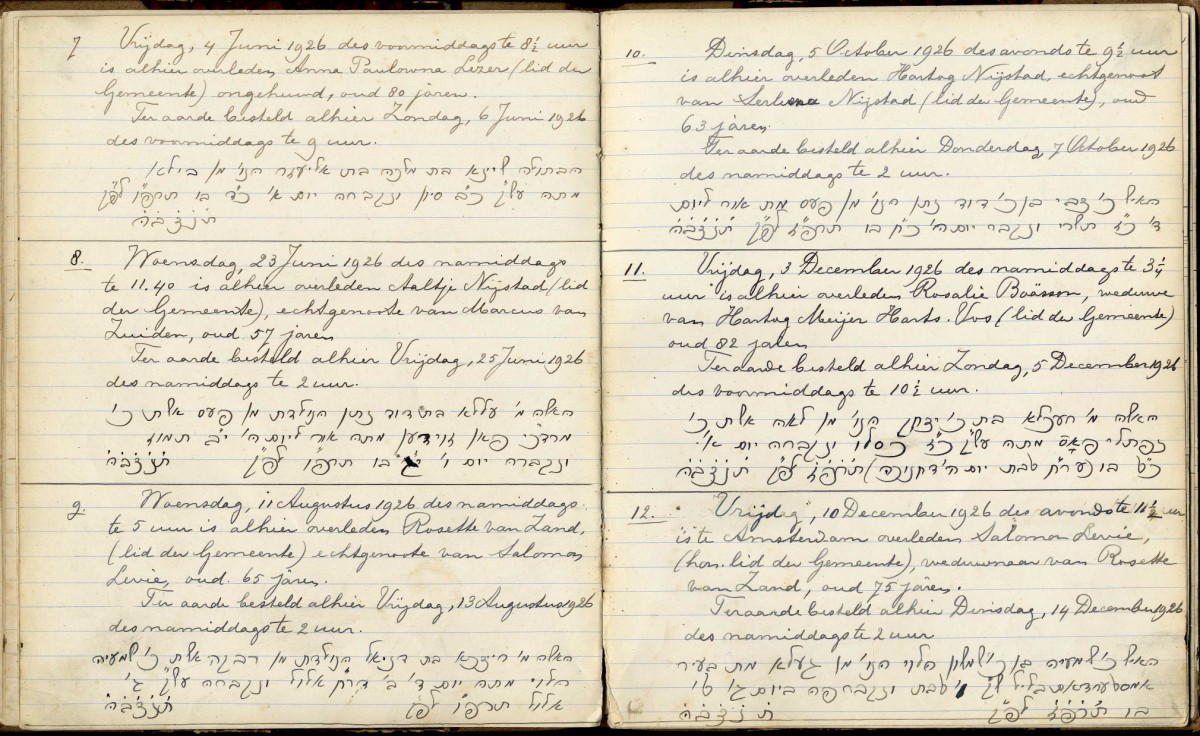 7 Vrijdag, 4 Juni 1926 des voormiddags te 8½ uur
is alhier overleden Anna Paulowna Lezer (lid der
Gemeente) ongehuwd, oud 80 jaren.
Ter aarde besteld alhier Zondag, 6 Juni 1926
des voormiddags te 9 uur.
הבתולה שיינא בת מלכה בת אליעזר הנו' מן ביילא
מתה עש"ק כ"ב סיון ונקברה יום א' כ"ד בו תרפ"ו לפ"ק
תנצבה
8. Woensdag, 23 Juni 1926 des namiddags
te 11.40 is alhier overleden Aaltje Nijstad (lid
der Gemeente), echtgenoote van Marcus van
Zuiden, oud 57 jaren
Ter aarde besteld alhier Vrijdag, 25 Juni 1926
des namiddags te 2 uur.
האשה מ' בת דוד נתן הנולדת מן אשת כ'
מרדכי פאן זוידען מתה אור ליום ה' י"ב תמוז
ונקברה יום ו' בו תרפ"ו לפ"ק תנצבה
9. Woensdag, 11 Augustus 1926 des namiddags
te 5 uur is alhier overleden Rosette van Zand,
(lid der Gemeente) echtgenoote van Salomon
Levie, oud 65 jaren.
Ter aarde besteld alhier Vrijdag, 13 Augustus 1926
des namiddags te 2 uur.
האשה מ' בת דניאל הנולדת מן רבקה אשת כ' שמעיה
הלוי מתה יום ד' ב' דר"ח אלול ונקברה עש"ק ג'
אלול תרפ"ו לפ"ק תנצבה
10. Dinsdag, 5 October 1926 des avonds te 9½ uur
is alhier overleden Hartog Nijstad, echtgenoot
van Nijstad (lid der Gemeente), oud
63 jaren.
Ter aarde besteld alhier Donderdag, 7 October 1926
des namiddags te 2 uur.
האיש כ' צבי בן כ' דוד נתן הנו' מן מת אור ליום
ד' כ"ז תשרי ונקבר יום ה' כ"ח בו תרפ"ז לפ"ק תנצבה
11. Vrijdag, 3 December 1926 des namiddags te 3¼
uur is alhier overleden Rosalie Boässon, weduwe
van Hartog Meijer Harts. Vos (lid der Gemeente)
oud 82 jaren
Ter aarde besteld alhier Zondag, 5 December 1926
des voormiddags te 10½ uur.
האשה מ' בת כ' יצחק הנו' מן לאה אשת כ'
נפתלי פאס מתה עש"ק כ"ז כסלו ונקברה יום א'
כ"ט בו (ער"ח טבת יום ה' דחנוכה) תרפ"ז לפ"ק תנצבה
12. Vrijdag, 10 December 1926 des avonds te 11½ uur
is te Amsterdam overleden Salomon Levie,
(hon. lid der Gemeente), weduwnaar van Rosette
van Zand, oud 75 jaren.
Ter aarde besteld alhier Dinsdag, 14 December 1926
des namiddags te 2 uur
האיש כ' שמעיה בן כ' שמשון הלוי הנו' מן געלא מת בעיר
אמסטערדאם בליל ש"ק טבת ביום ג' ט'
בו תרפ"ז לפ"ק תנצבה